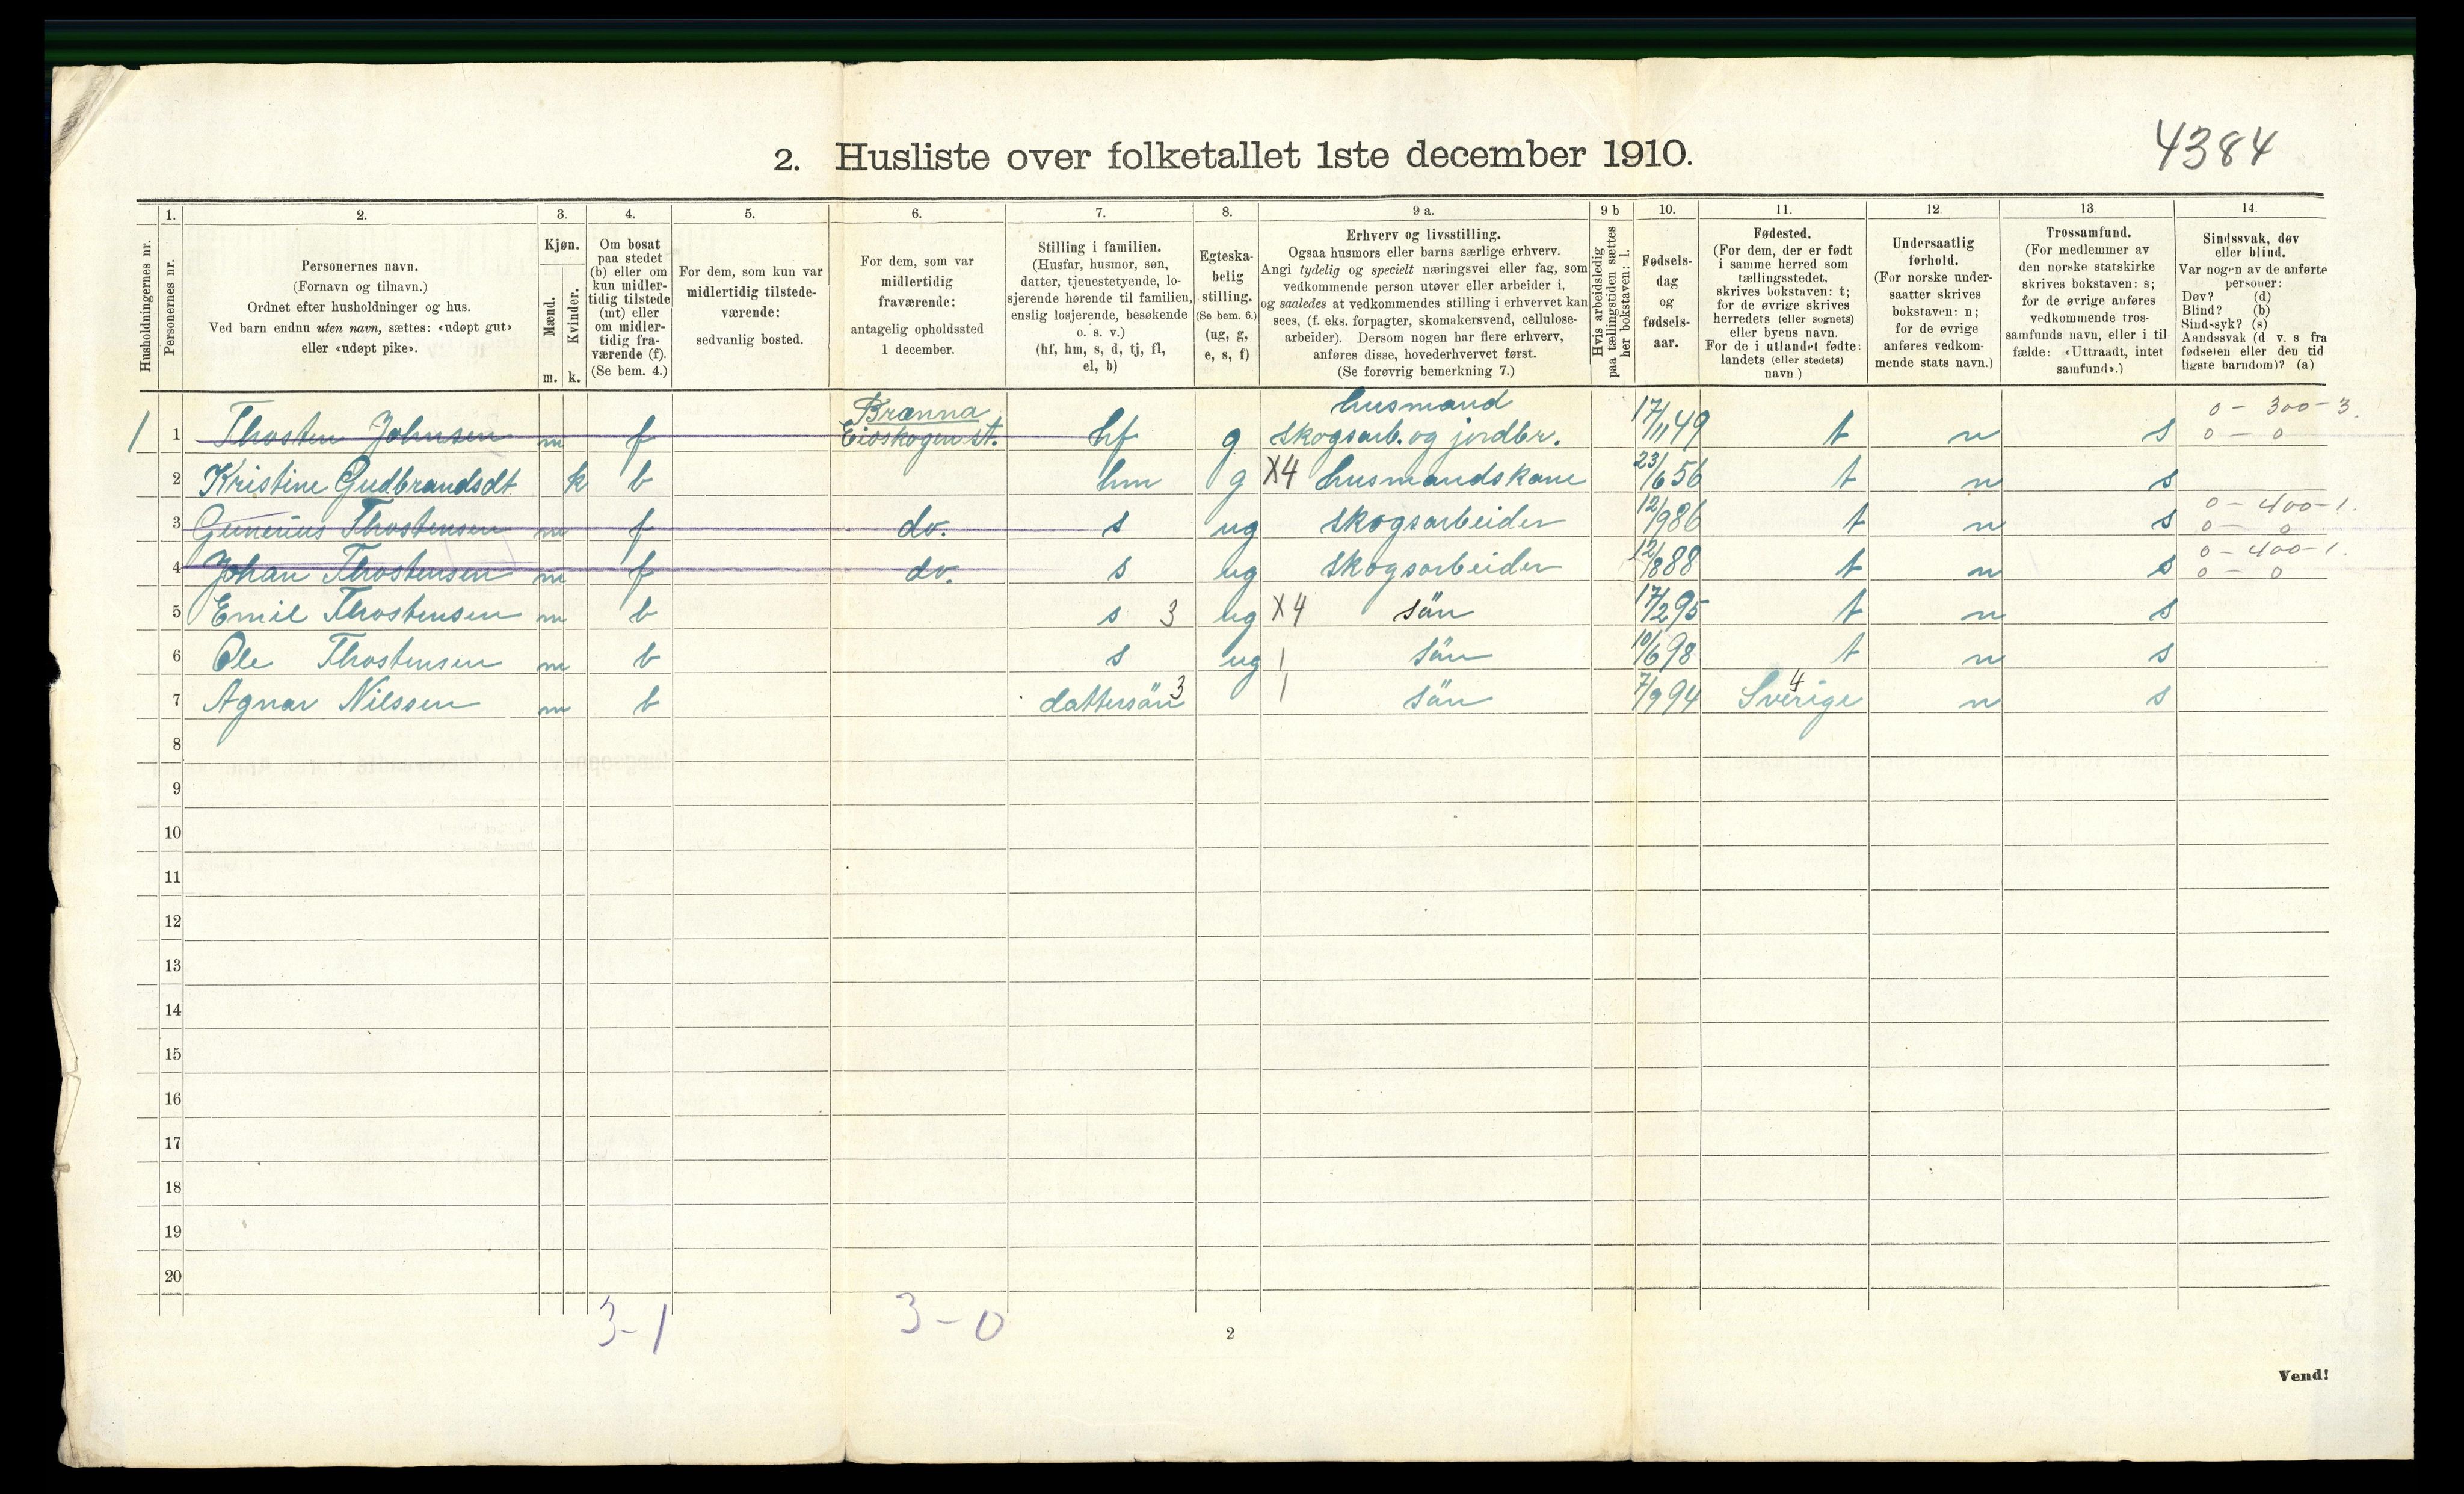 4384
2. Husliste over folketallet 1ste december 1910.
Husholdningernes nr.
1.
Personernes nr.
2.
Personernes navn.
(Fornavn og tilnavn.)
Ordnet efter husholdninger og hus.
Ved barn endnu uten navn, sættes: «udøpt gut»
eller «udøpt pike».
3.
Kjøn.
Mænd.
Kvinder.
m. k.
4.
Om bosat
paa stedet
(b) eller om
kun midler-
tidig tilstede
(mt) eller
om midler-
tidig fra-
værende (f).
(Se bem. 4.)
5.
For dem, som kun var
midlertidig tilstede-
værende:
sedvanlig bosted.
6.
For dem, som var
midlertidig
fraværende:
antagelig opholdssted
1 december.
7.
Stilling i familien.
(Husfar, husmor, søn,
datter, tjenestetyende, lo-
sjerende hørende til familien,
enslig losjerende, besøkende
o. s. v.)
(hf, hm, s, d, tj, fl,
el, b)
8.
Egteska-
belig
stilling.
(Se bem. 6.)
(ug, g,
e, s, f)
9 a.
Erhverv og livsstilling.
Ogsaa husmors eller barns særlige erhverv.
Angi tydelig og specielt næringsvei eller fag, som
vedkommende person utøver eller arbeider i,
og saaledes at vedkommendes stilling i erhvervet kan
sees, (f. eks. forpagter, skomakersvend, cellulose-
arbeider). Dersom nogen har flere erhverv,
anføres disse, hovederhvervet først.
(Se forøvrig bemerkning 7.)
9 b
Hvis arbeidsledig
paa tællingstiden sættes
her bokstaven: l.
10.
Fødsels-
dag
og
fødsels-
aar.
11.
Fødested.
(For dem, der er født
i samme herred som
tællingsstedet,
skrives bokstaven: t;
for de øvrige skrives
herredets (eller sognets)
eller byens navn.
For de i utlandet fødte:
landets (eller stedets)
navn)
12
Undersaatlig
forhold.
(For norske under-
saatter skrives
bokstaven: n;
for de øvrige
anføres vedkom-
mende stats navn.)
13
Trossamfund.
(For medlemmer av
den norske statskirke
skrives bokstaven: s;
for de øvrige anføres
vedkommende tros-
samfunds navn, eller i til
fælde: «Uttraadt, intet
samfund».)
14.
Sindssvak, døv
eller blind.
Var nogen av de anførte
personer:
Døv? (d)
Blind? (b)
Sindssyk? (s)
Aandssvak (d. v. s fra
fødselen eller den tid
ligste barndom)? (a)
Brænna husmand 0 - 300 - 3.
1 1 Thosten Johnsen m f Eidskogen st. hf g skogsarb. og jordbr. 17/11 49 t n s 0 - 0
2 Kristine Gudbrandsdt k b hm g X4 husmandskone 23/6 56 t n s
0 - 400 - 1.
3 Gunerius Thostensen m f do. s ug skogsarbeider 12/9 86 t n s 0 - 0
0 - 400 - 1.
4 Johan Thostensen m f do. s ug skogsarbeider 12/8 88 t n s 0 - 0
5 Emil Thostensen m b s 3 ug X4 sön 17/2 95 t n s
6 Ole Thostensen m b s ug 1 sön 10/6 98 t n s
7 Agnar Nilssen m b dattersön 3 1 sön 7/9 94 Sverige 4 n s
8
9
10
11
12
13
14
15
16
17
18
19
20
3-1 3-0
2
Vend!